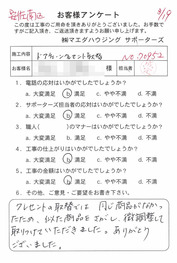 安佐南区
3/9
お客様アンケート
この度は工事のご用命を頂きありがとうございました。お手数で
すがご記入頂き、ご返送頂きますようお願い申し上げます。
㈱マエダハウジング サポーターズ
施工内容
No.00952
お名前
様
担当者
1．電話の応対はいかがでしたでしょうか?
A 大変満足 B 満足 C やや不満 D 不満
2．サポーターズ担当者の応対はいかがでしたでしょうか?
A 大変満足 B 満足 C やや不満 D 不満
3．職人( )のマナーはいかがでしたでしょうか?
A 大変満足 B 満足 C やや不満 D 不満
4．工事の仕上がりはいかがでしたでしょうか?
A 大変満足 B 満足 C やや不満 D 不満
5．工事の金額はいかがでしたでしょうか?
A 大変満足 B 満足 C やや不満 D 不満
6．その他、ご意見・ご要望をお書き下さい。
クレセントの取替では 同じ商品がなかっ
たため、似た商品をさがし、微調整して
取り付けていただきました。ありがとう
ございました。